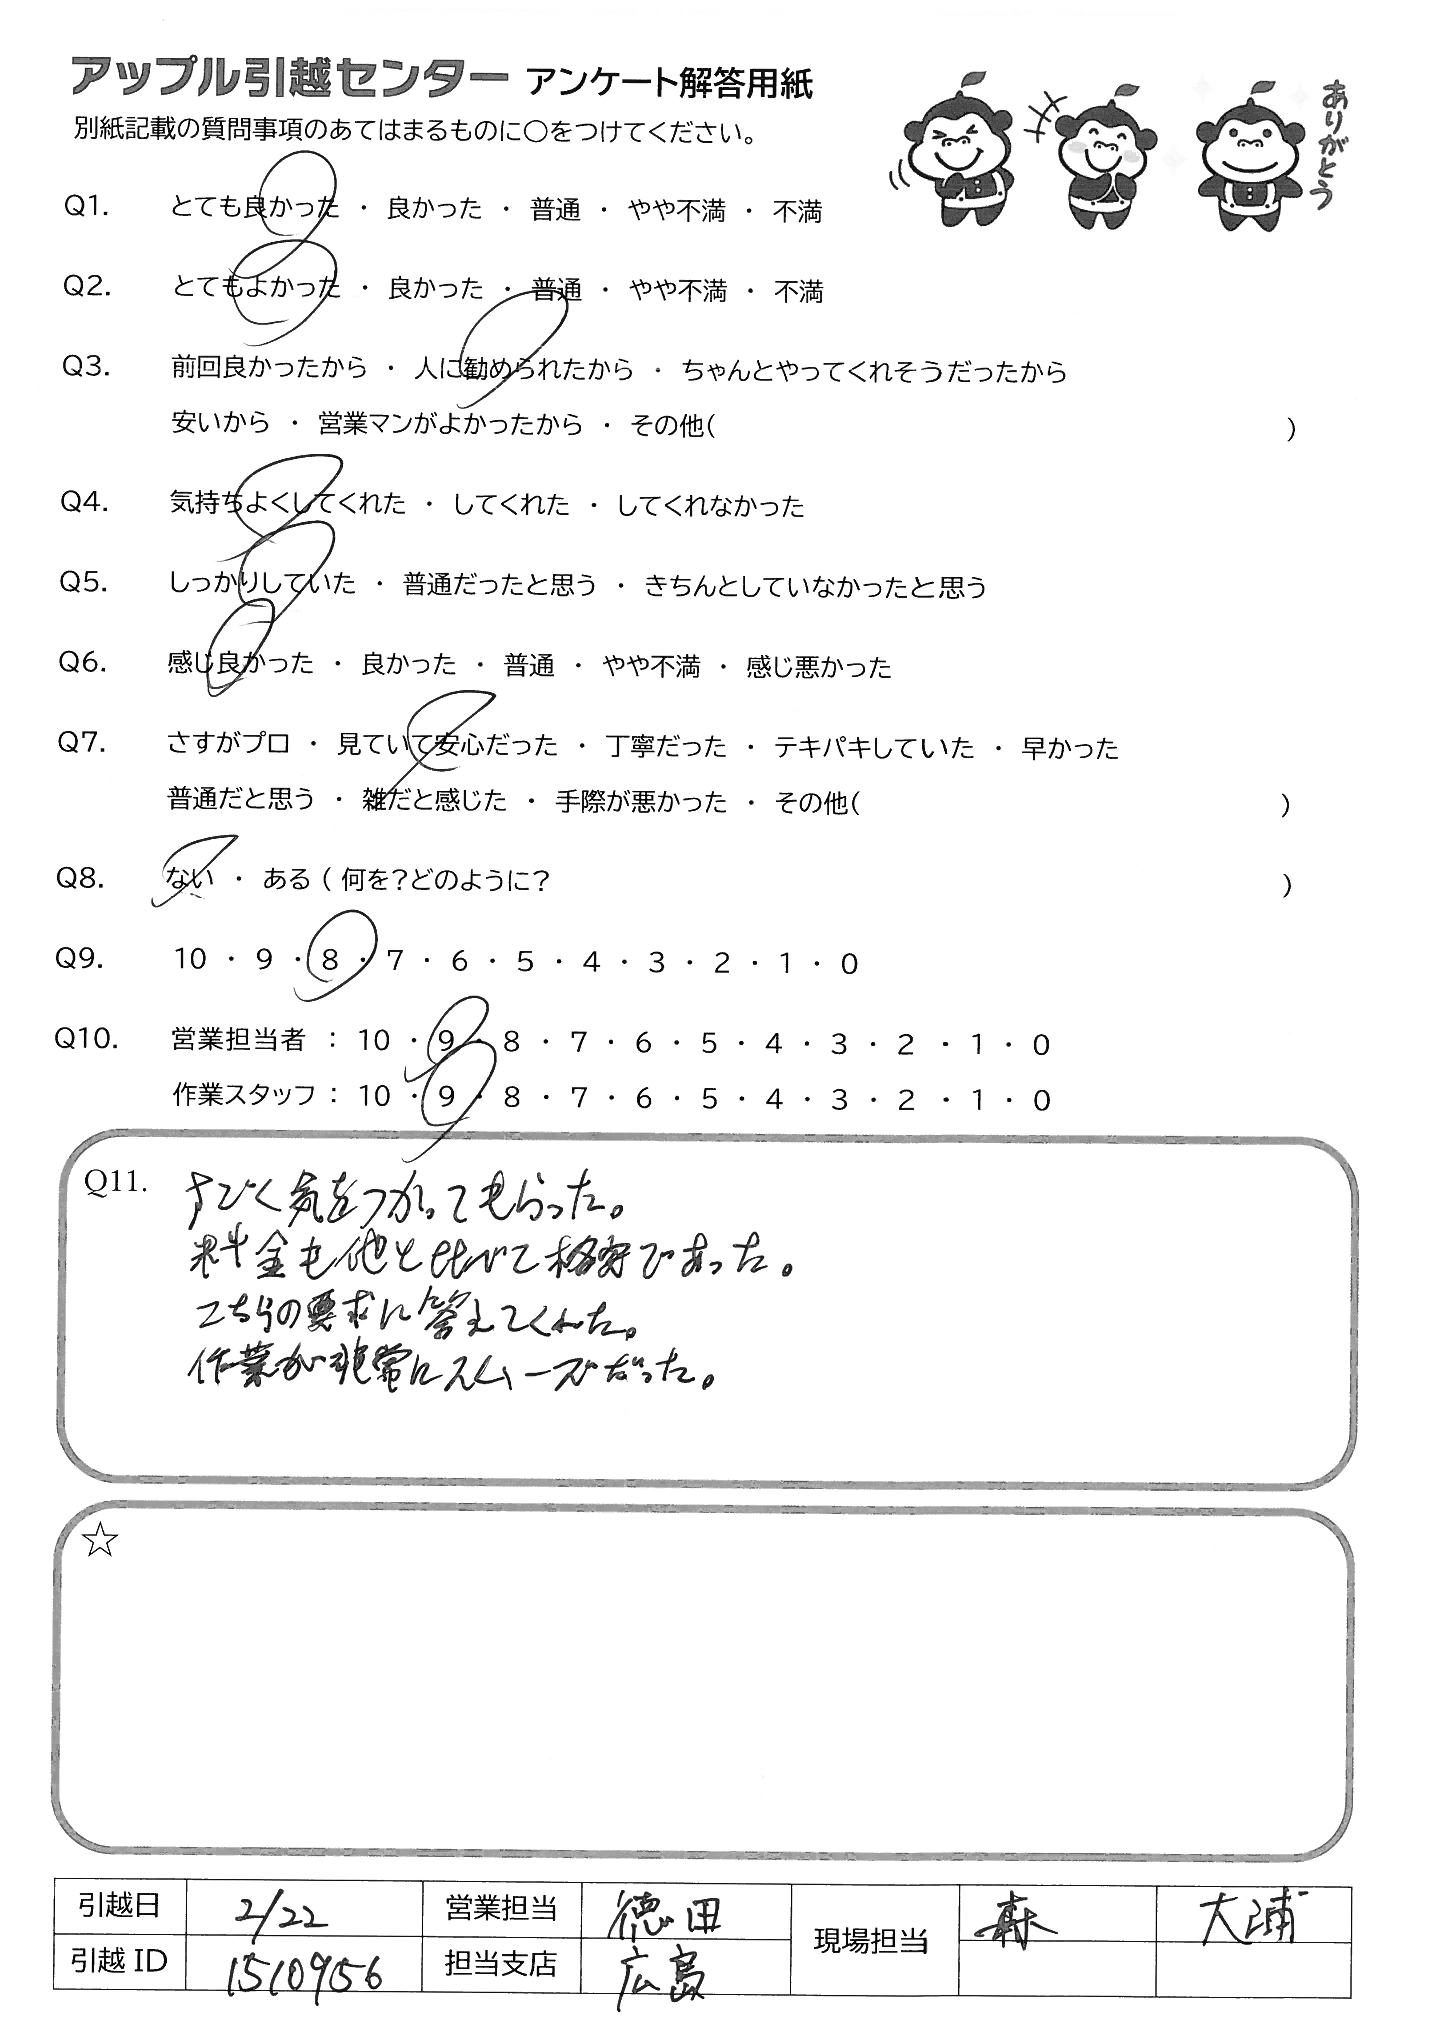 アップル引越センター アンケート解答用紙
別紙記載の質問事項のあてはまるものに○をつけてください。
ありがとう
Q1. とても良かった ・ 良かった ・ 普通 ・ やや不満 ・ 不満
Q2. とてもよかった ・ 良かった ・ 普通 ・ やや不満 ・ 不満
Q3. 前回良かったから ・ 人に勧められたから ・ ちゃんとやってくれそうだったから
安いから ・ 営業マンがよかったから ・ その他( )
Q4. 気持ちよくしてくれた ・ してくれた ・ してくれなかった
Q5. しっかりしていた ・ 普通だったと思う ・ きちんとしていなかったと思う
Q6. 感じ良かった ・ 良かった ・ 普通 ・ やや不満 ・ 感じ悪かった
Q7. さすがプロ ・ 見ていて安心だった ・ 丁寧だった ・ テキパキしていた ・ 早かった
普通だと思う ・ 雑だと感じた ・ 手際が悪かった ・ その他( )
Q8. ない ・ ある ( 何を?どのように? )
Q9. 10 ・ 9 ・ 8 ・ 7 ・ 6 ・ 5 ・ 4 ・ 3 ・ 2 ・ 1 ・ 0
Q10. 営業担当者 : 10 ・ 9 ・ 8 ・ 7 ・ 6 ・ 5 ・ 4 ・ 3 ・ 2 ・ 1 ・ 0
作業スタッフ : 10 ・ 9 ・ 8 ・ 7 ・ 6 ・ 5 ・ 4 ・ 3 ・ 2 ・ 1 ・ 0
Q11. すごく気をつかってもらった。
料金も他と比べて格安であった。
こちらの要求に答えてくれた。
作業が非常にスムーズだった。
☆
引越日 2/22 営業担当 徳田 現場担当 森 大浦
引越 ID 1510956 担当支店 広島